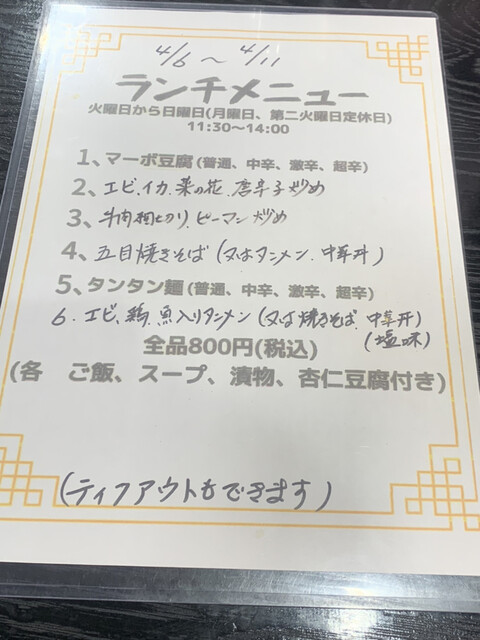 4/6 〜 4/11
ランチメニュー
火曜日から日曜日(月曜日、第二火曜日定休日)
11:30〜14:00
1、マーボ豆腐(普通、中辛、激辛、超辛)
2、エビ、イカ、菜の花、唐辛子炒め
3、牛肉細切り、ピーマン炒め
4、五目焼きそば(又はタンメン、中華丼)
5、タンタン麺(普通、中辛、激辛、超辛)
6、エビ、鶏、魚入りタンメン(又は焼きそば、中華丼)
(塩味)
全品800円(税込)
(各 ご飯、スープ、漬物、杏仁豆腐付き)
(ティクアウトもできます)